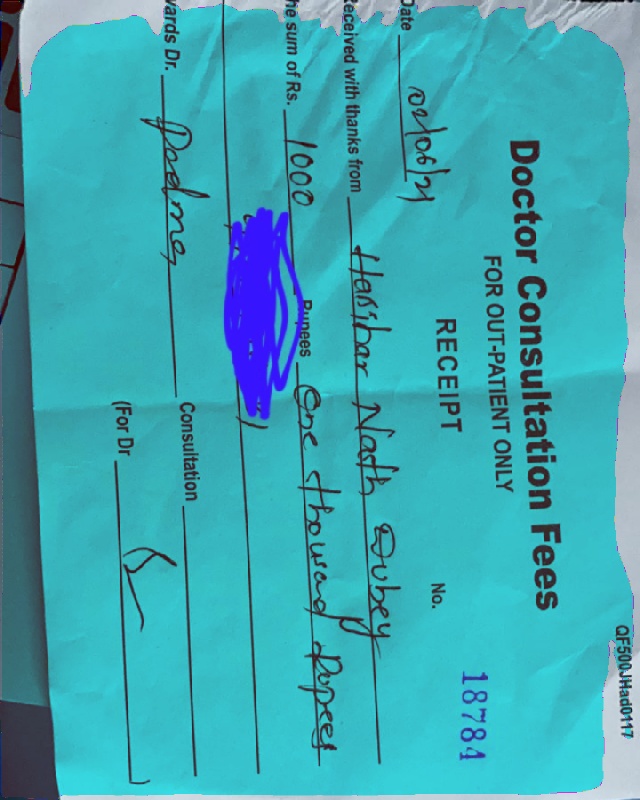 QF500JHad0117
Doctor Consultation Fees
FOR OUT-PATIENT ONLY
RECEIPT
No. 18784
Date 02/06/21
Received with thanks from Harihar Nath Dubey
he sum of Rs. 1000 Rupees One thousand Rupees
wards Dr. Padma Consultation
(For Dr )